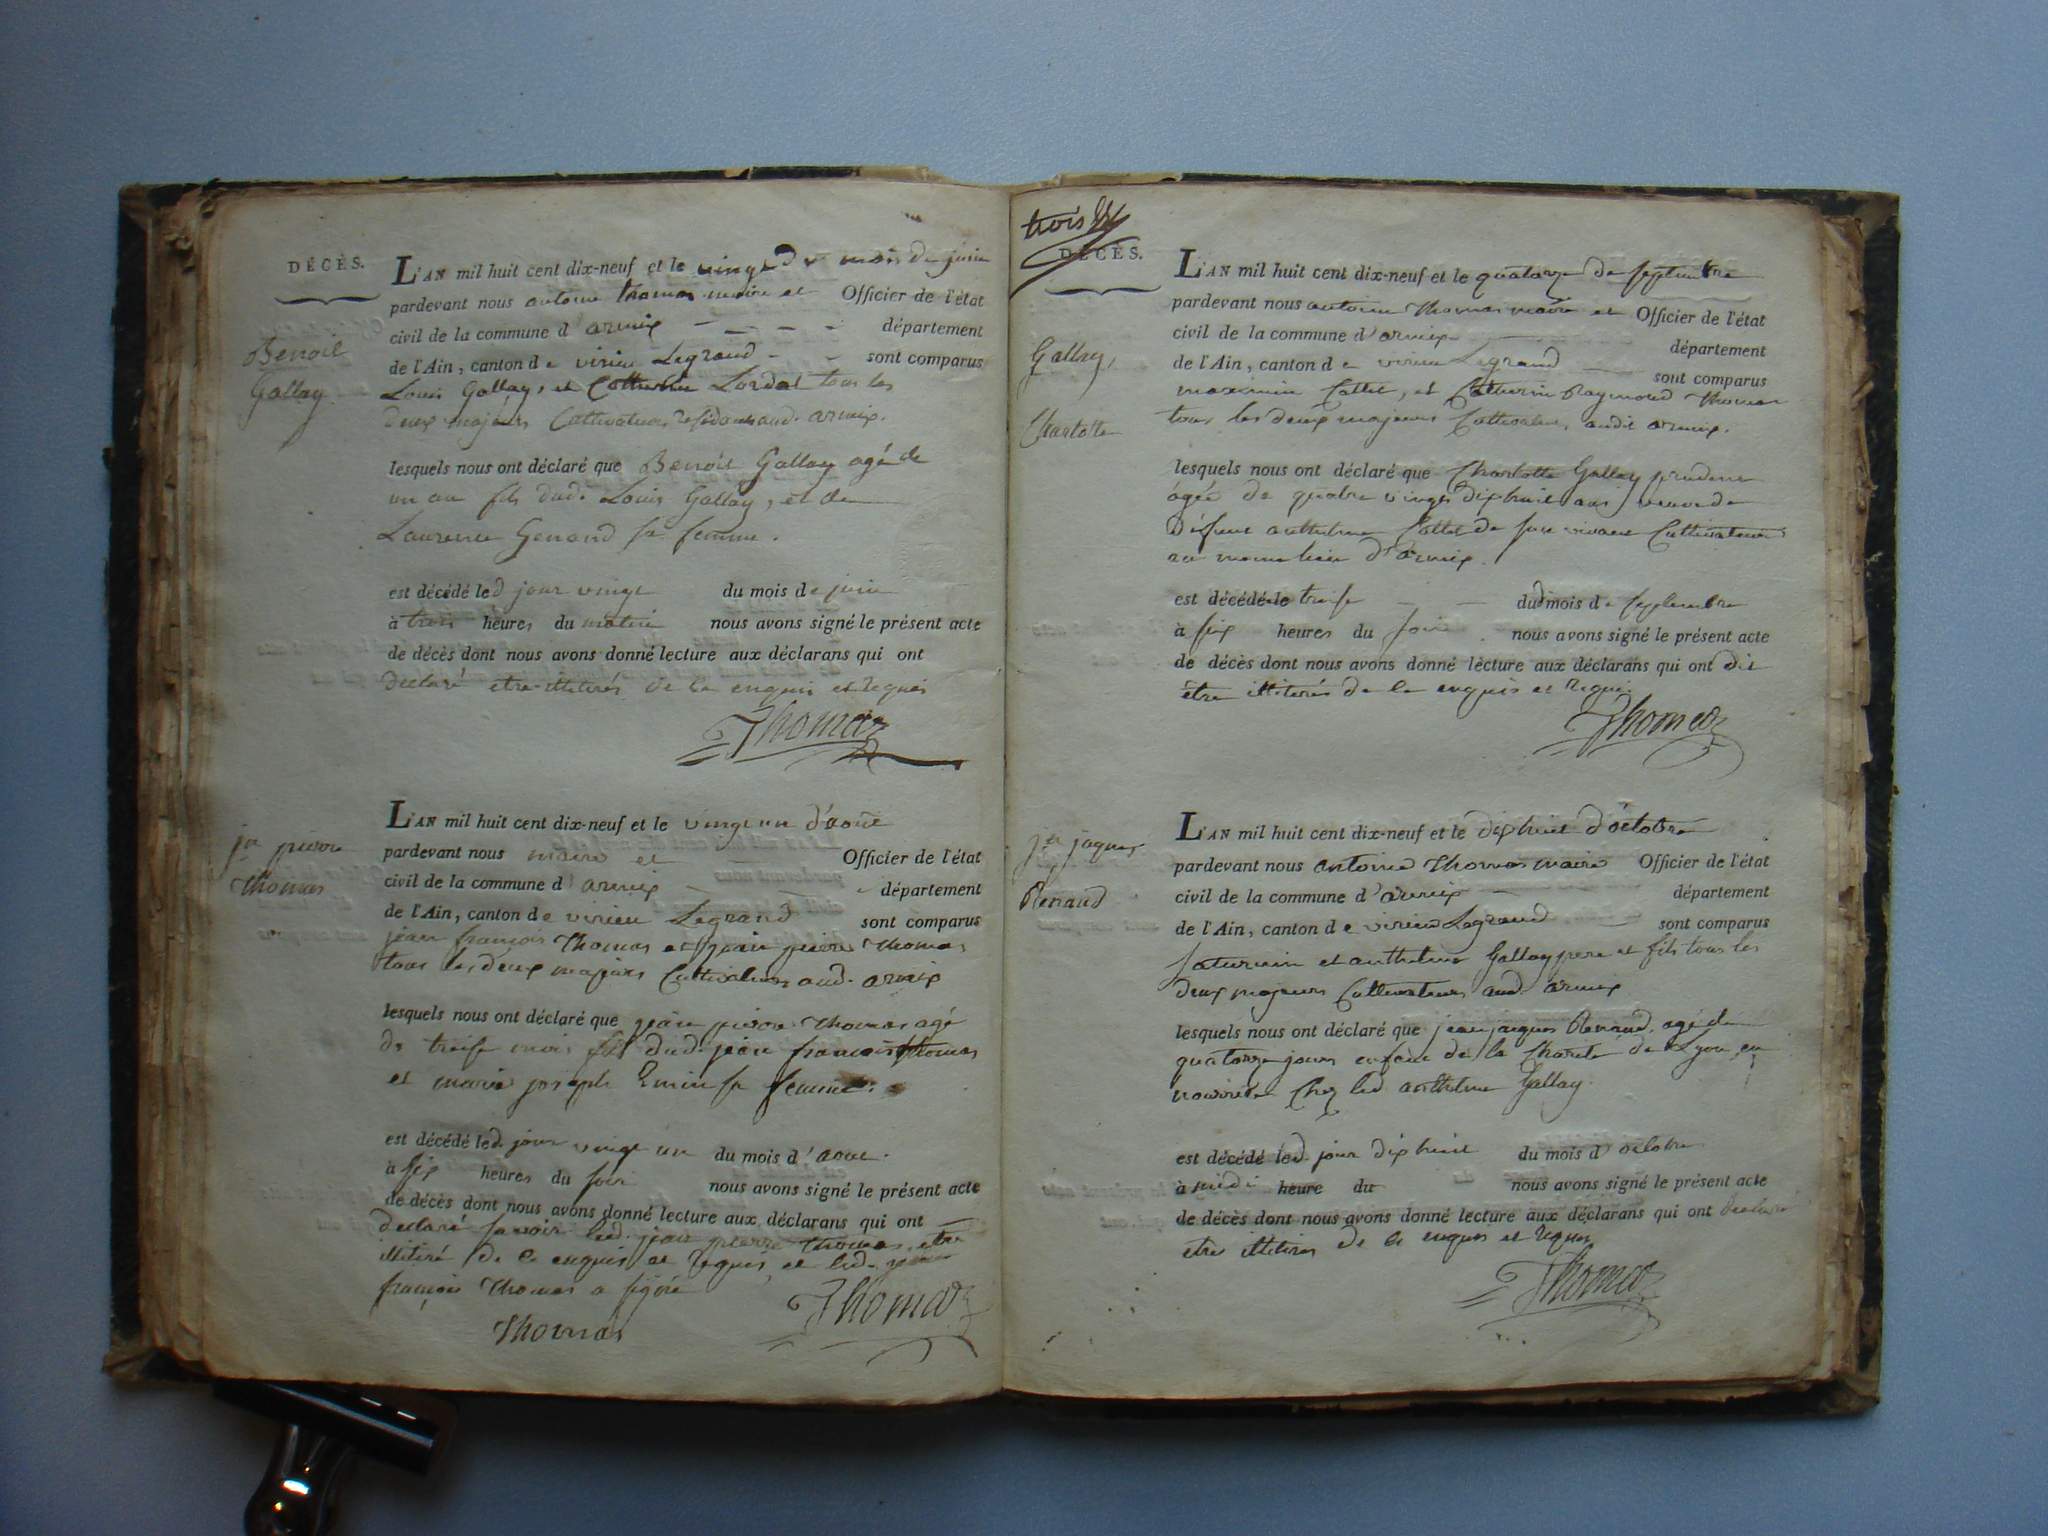 DÉCÈS.
Benoit
Gallay
L'AN mil huit cent dix-neuf et le vingt du mois de juin
pardevant nous antoine thomas maire et Officier de l'état
civil de la commune d'armix département
de l'Ain, canton de virieu Legrand sont comparus
Louis Gallay, et Catherin Lordat tous les
deux majeurs Cultivateurs residants aud. armix.
lesquels nous ont déclaré que Benoit Gallay agé de
un an fils dud. Louis Gallay, et de
Laurence Genand sa femme.
est décédé led jour vingt du mois de juin
à trois heures du matin nous avons signé le présent acte
de décès dont nous avons donné lecture aux déclarans qui ont
declaré etre illitirés de ce enquis et requis
Thomas
jn pierre
thomas
L'AN mil huit cent dix-neuf et le vingt un d'aout
pardevant nous maire et Officier de l'état
civil de la commune d'armix département
de l'Ain, canton de virieu Legrand sont comparus
jean françois Thomas et jean pierre Thomas
tous les deux majeurs Cultivateurs aud. armix
lesquels nous ont déclaré que jean pierre Thomas agé
de treise mois fils dud. jean françois thomas
et marie joseph Emin sa femme.
est décédé led. jour vingt un du mois d'aout.
à six heures du soir nous avons signé le présent acte
de décès dont nous avons donné lecture aux déclarans qui ont
declaré savoir led. jean pierre Thomas etre
illitiré de ce enquis et requis, et led. jean
françois Thomas a signé
Thomas Thomas
trois
DÉCÈS.
Gallay,
Charlotte
L'AN mil huit cent dix-neuf et le quatorze de septembre
pardevant nous antoine Thomas maire et Officier de l'état
civil de la commune d'armix département
de l'Ain, canton de virieu Legrand sont comparus
maximin Callet, et Catherin Raymond Thomas
tous les deux majeurs Cultivateurs, audit armix.
lesquels nous ont déclaré que Charlotte Gallay
agée de quatre vingt dix huit ans veuve de
défunt anthelme Callet de son vivant Cultivateur
au meme lieu d'armix.
est décédé le treise dud mois de septembre
à six heures du soir nous avons signé le présent acte
de décès dont nous avons donné lecture aux déclarans qui ont dit
être illitirés de ce enquis et requis
Thomas
jn jaques
Renaud
L'AN mil huit cent dix-neuf et le dix huit d'octobre
pardevant nous antoine Thomas maire Officier de l'état
civil de la commune d'armix département
de l'Ain, canton de virieu Legrand sont comparus
saturnin et anthelme Gallay pere et fils tous les
deux majeurs Cultivateurs aud. armix
lesquels nous ont déclaré que jean jaques Renaud, agé de
quatorze jours enfant de la Charité de Lyon, en
nourrice Chez led anthelme Gallay.
est décédé led. jour dix huit du mois d'octobre
à midi heure du nous avons signé le présent acte
de décès dont nous avons donné lecture aux déclarans qui ont declaré
etre illitirés de ce enquis et requis
Thomas